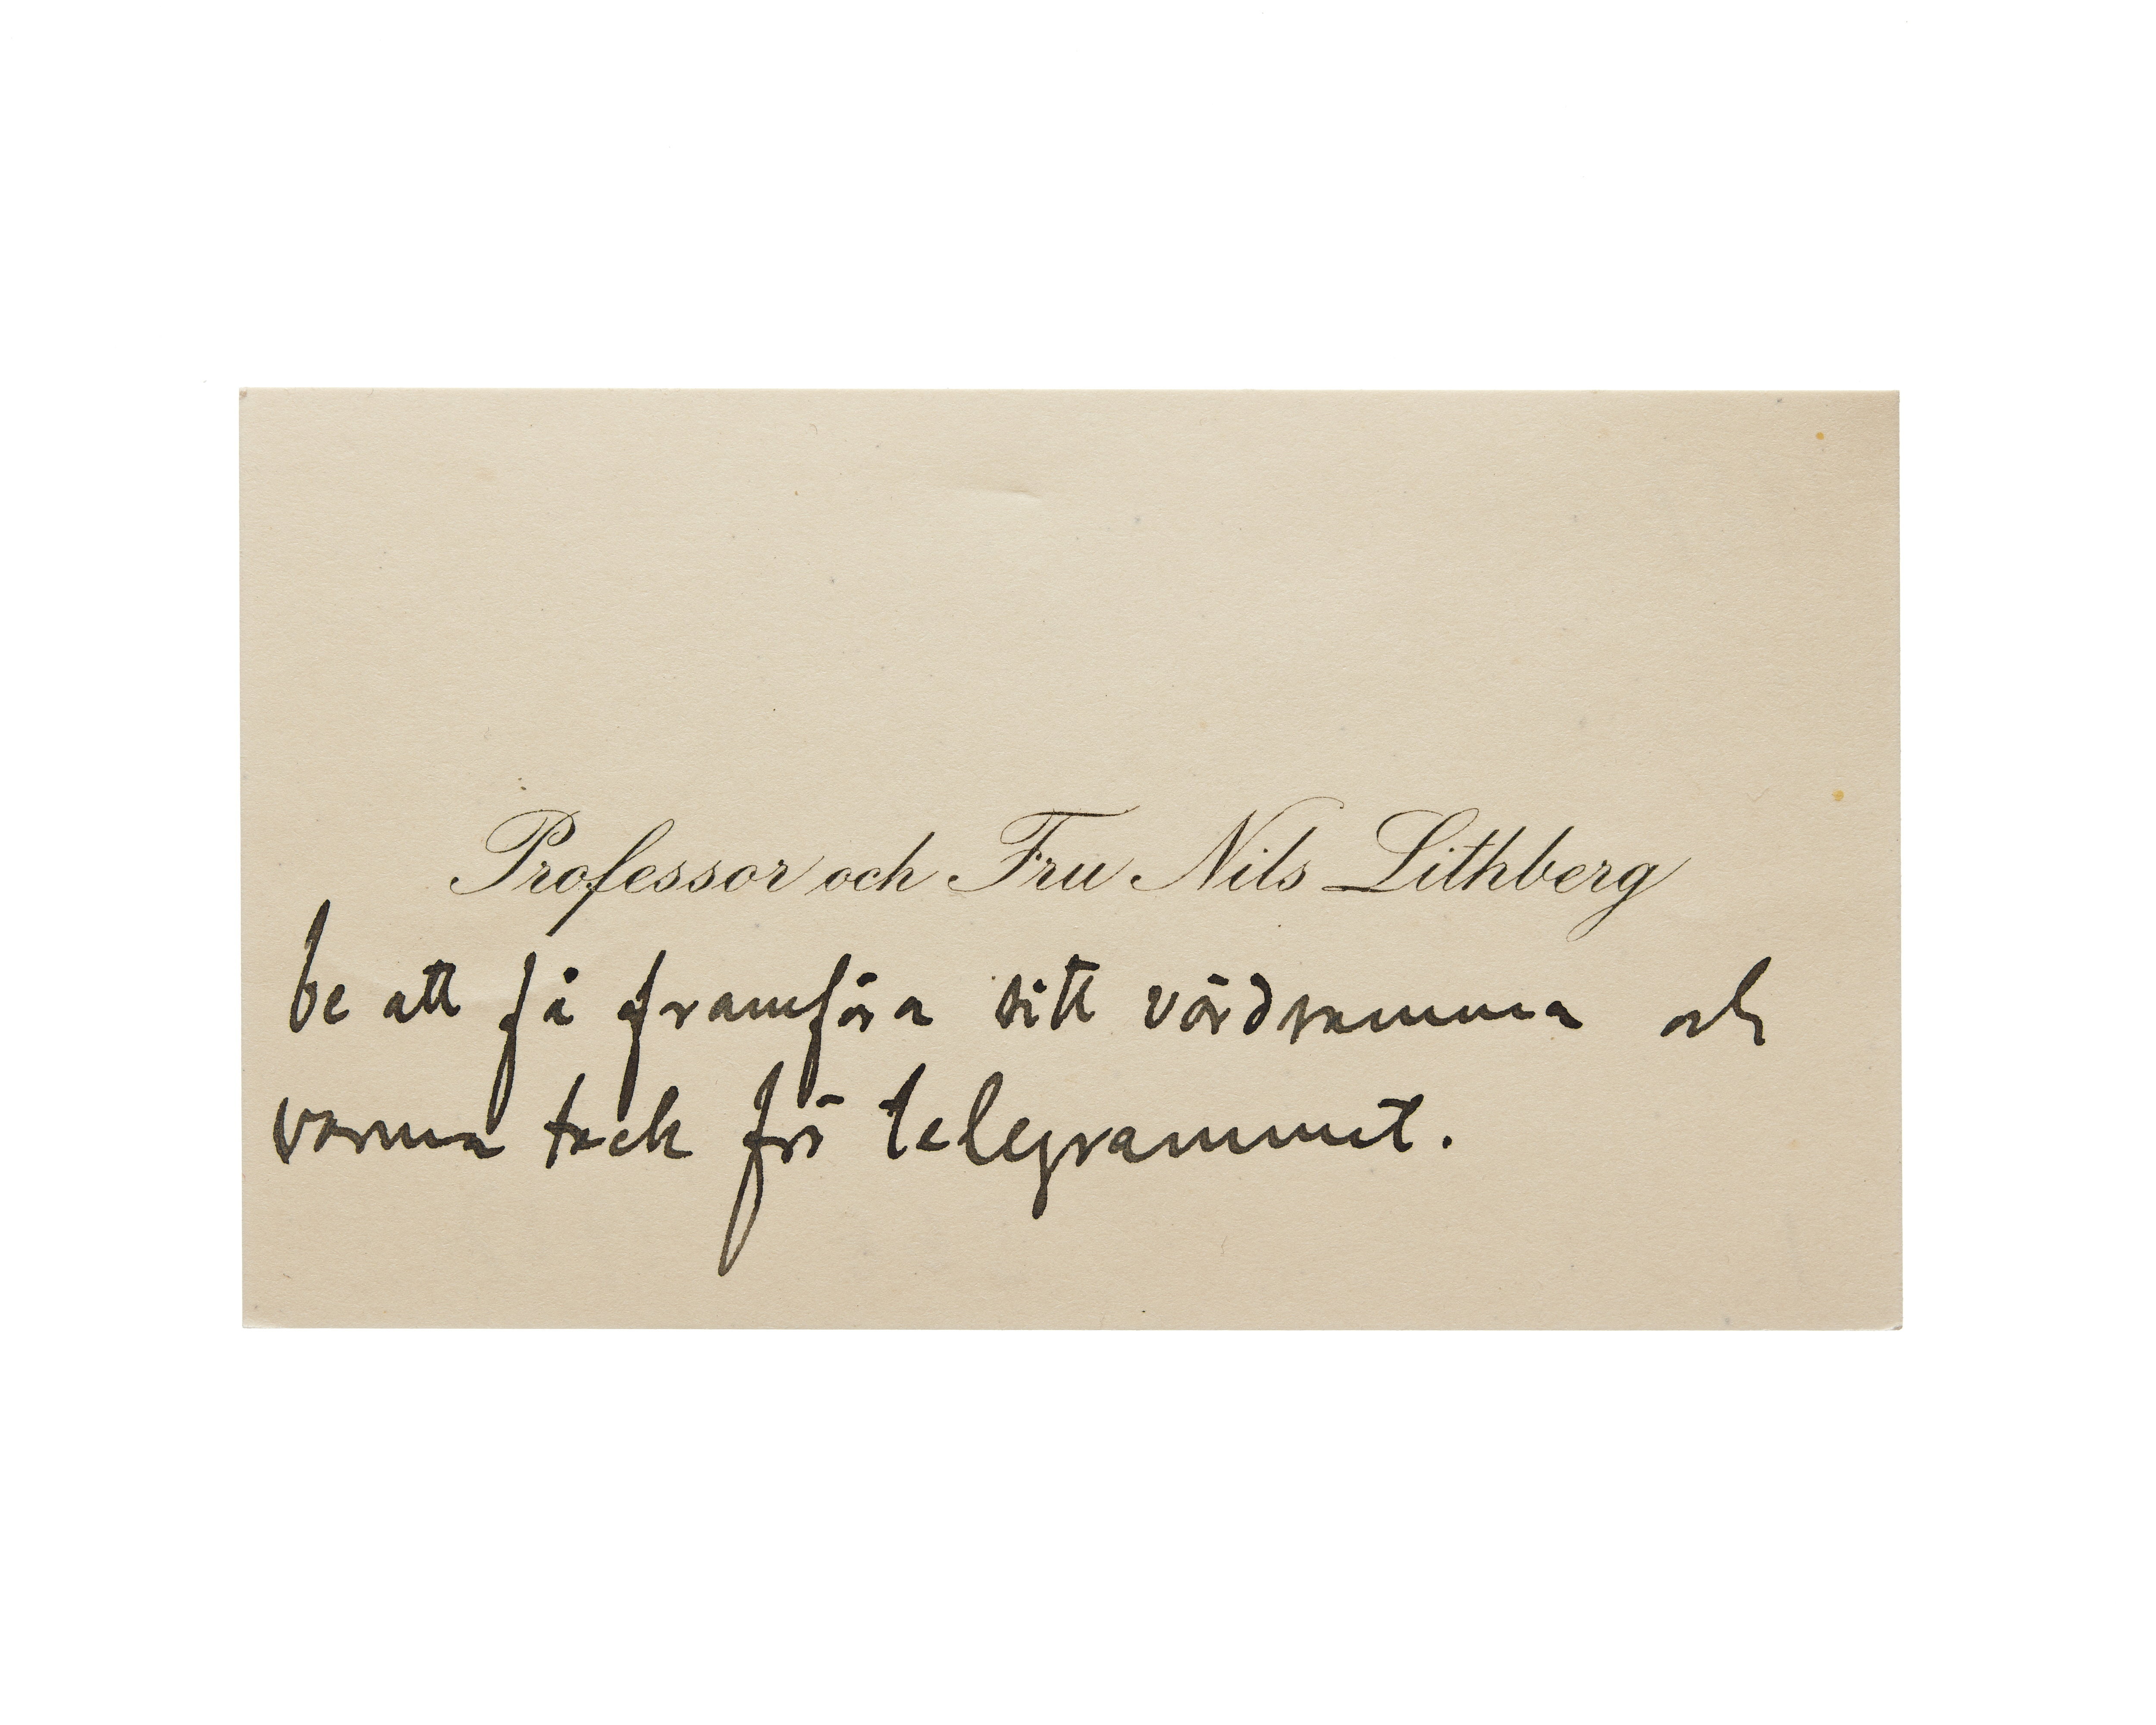 Professor och Fru Nils Lithberg
be att få framföra sitt vördsamma och
varma tack för telegrammet.